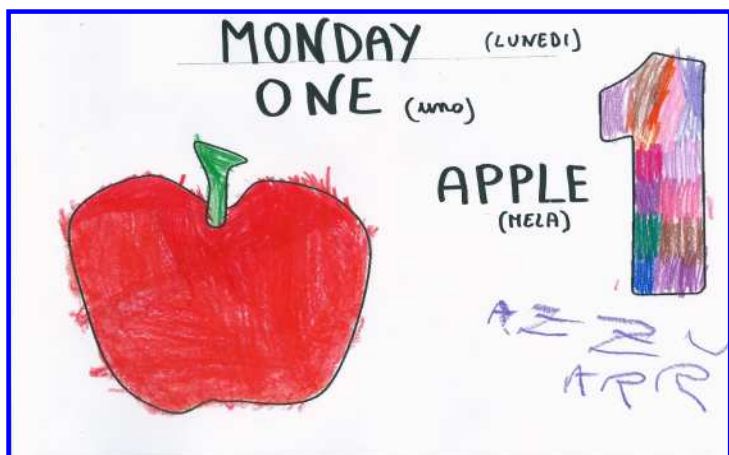 MONDAY (LUNEDI)
ONE (uno)
APPLE
(MELA)
AZZU
ARR